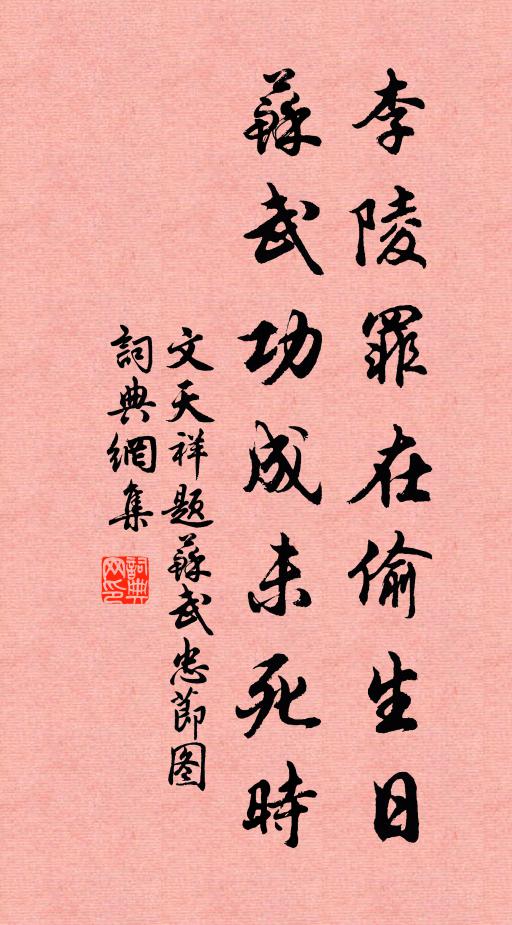 李陵罪在偷生日
蘇武功成未死時
文天祥題蘇武忠節图
詞典網集
詞典网印